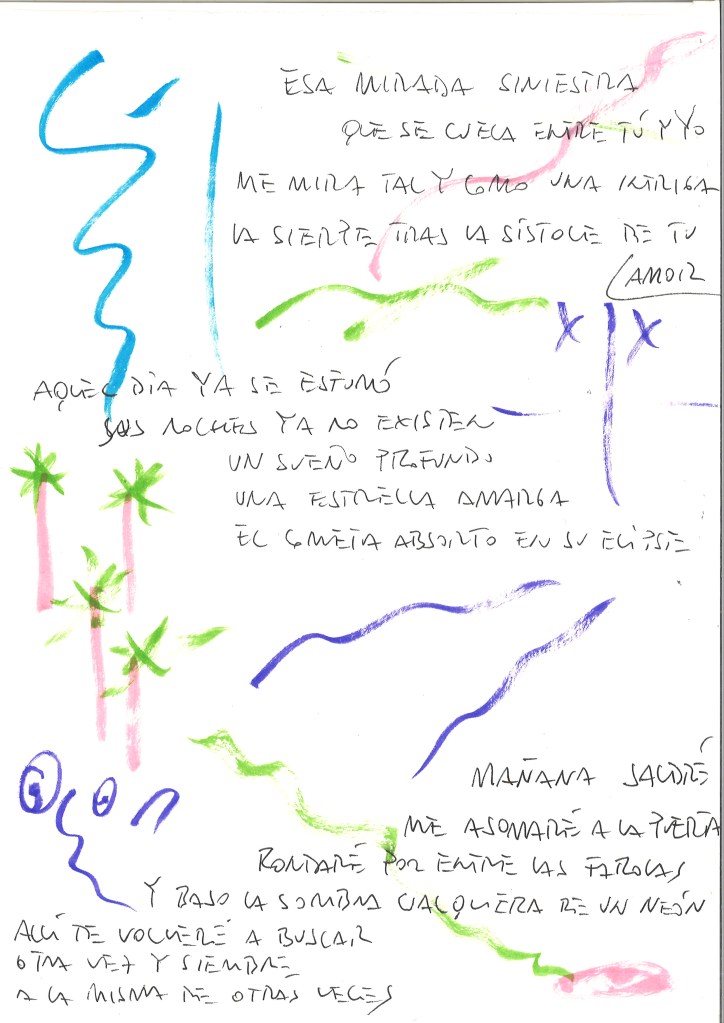 ESA MIRADA SINIESTRA
QUE SE CUELA ENTRE TÚ Y YO
ME MIRA TAL Y COMO UNA INTRIGA
LA SIERPE TRAS LA SÍSTOLE DE TU
AMOR
AQUEL DÍA YA SE ESFUMÓ
SUS NOCHES YA NO EXISTEN
UN SUEÑO PROFUNDO
UNA ESTRELLA AMARGA
EL COMETA ABSORTO EN SU ECLIPSE
MAÑANA SALDRÉ
ME ASOMARÉ A LA PUERTA
RONDARÉ POR ENTRE LAS FAROLAS
Y BAJO LA SOMBRA CUALQUIERA DE UN NEÓN
ALLÍ TE VOLVERÉ A BUSCAR
OTRA VEZ Y SIEMBRE
A LA MISMA DE OTRAS VECES